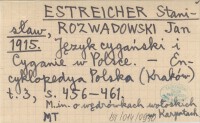 ESTREICHER Stani-
sław, ROZWADOWSKI Jan
1915.
Język cygański i
Cyganie w Polsce. – En-
cyklopedya Polska (Kraków)
t. 3, s. 456–461.
M.in. o wędrówkach wołoskich
MT Karpatach